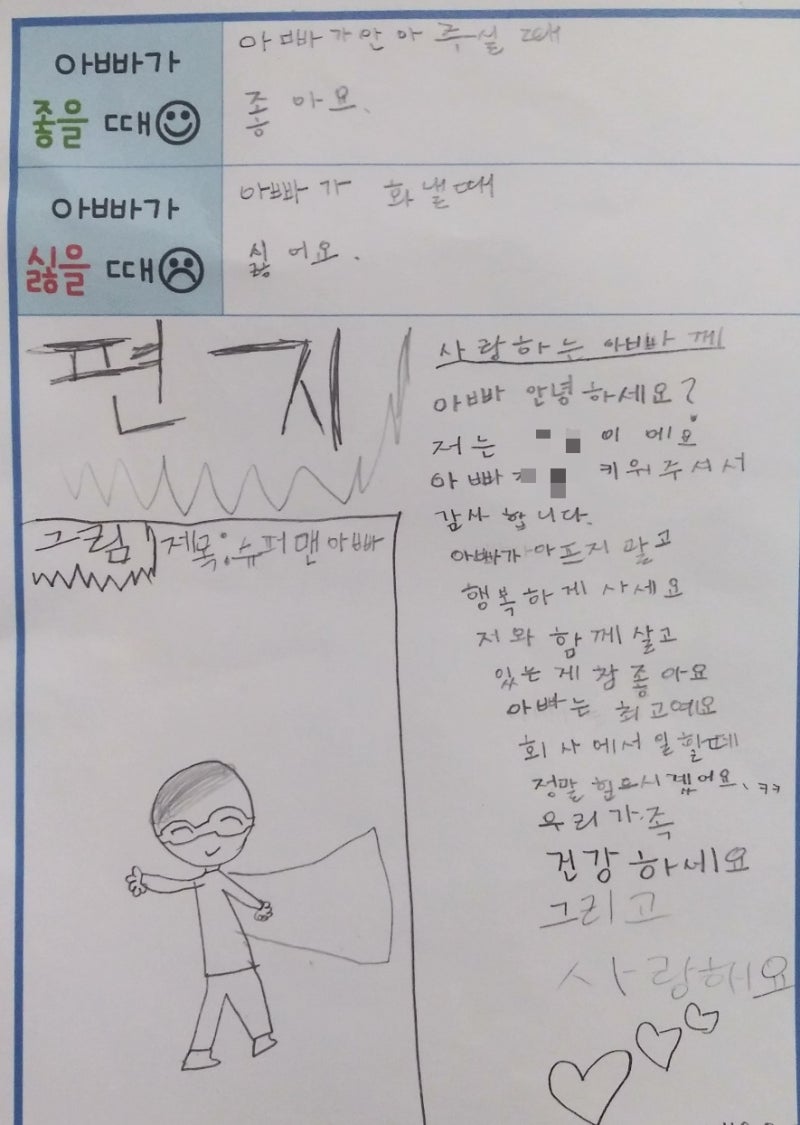 아빠가
좋을 때
아빠가 안아 주실 때
좋아요.
아빠가
싫을 때
아빠가 화낼때
싫어요.
편지
그림
제목: 슈퍼맨아빠
사랑하는 아빠께
아빠 안녕하세요?
저는 이에요
아빠 키워주셔서
감사합니다.
아빠가 아프지 말고
행복하게 사세요
저와 함께 살고
있는 게 참 좋아요
아빠는 최고예요
회사에서 일할때
정말 힘드시겠어요. ㅋㅋ
우리가족
건강하세요
그리고
사랑해요